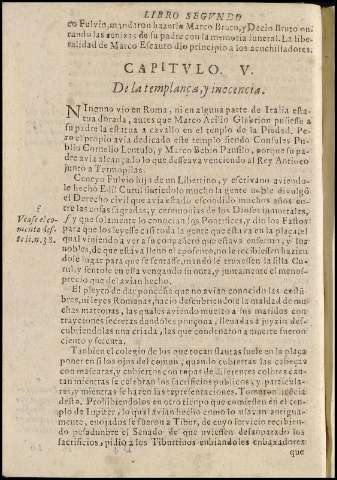 LIBRO SEGVNDO
co Fulvio, mandaron hazerle Marco Bruto, y Decio Bruto on-
rando las cenizas de su padre con la memoria funeral. La libe-
ralidad de Marco Escauro dio principio a los acuchilladores.
CAPITVLO. V.
De la templança, y inocencia.
NInguno vio en Roma, ni en alguna parte de Italia esta-
tua dorada, antes que Marco Acilio Glabrion pusiesse a
su padre la estatua a cavallo en el templo de la Piedad. Pe-
ro el propio avia dedicado este templo siendo Consules Pu-
blio Cornelio Lentulo, y Marco Bebio Panfilo, porque su pa-
dre avia alcançado lo que desseava venciendo al Rey Antioco
junto a Termopilas.
Cneyo Fulvio hijo de un Libertino, y escrivano aviendo-
le hecho Edil Curul sintiedolo mucho la gente noble divulgò
el Derecho civil que avia estado escondido muchos años en-
tre las cosas sagradas, y ceremonias de los Dioses inmortales,
y que solamente lo conocian los Pontifices, y dio los Fastos
para que los leyesse casi toda la gente que estava en la plaça, el
qual viniendo a ver a su conpañero que estava enfermo, y los
nobles, de que estava lleno el aposento, no le recibiessen hazien
dole lugar para que se sentasse, mandò le truxessen la silla Cu-
rul, y sentose en ella vengando su onra, y juntamente el menos-
precio que le avian hecho.
El pleyto de dar ponçoña que no avian conocido las costũ-
bres, ni leyes Romanas, nacio descubriendose la maldad de mu
chas matronas, las quales aviendo muerto a sus maridos con
trayciones secretas dandoles ponçoña, llevadas a juyzio des-
cubriendolas una criada, las que condenaron a muerte fueron
ciento y setenta.
Tanbien el colegio de los que tocan flautas suele en la plaça
poner en si los ojos del comun, quando cobiertas las cabeças
con mascaras, y cubiertos con ropas de diferentes colores can-
tan mientras se celebran los sacrificios publicos, y particula-
res, y mientras se hazen las representaciones. Tomaron licẽcia
desta. Prohibiendolos en otro tiempo que comiessen en el tem-
plo de Iupiter, lo qual avian hecho como lo usavan antigua-
mente, enojados se fueron a Tibur, de cuyo servicio recibien-
do pesadunbre el Senado de que uviessen desanparado los
sacrificios, pidio a los Tiburtinos enbiandoles enbaxadores
que
f
Vease el co-
mento des-
te li. n. 38.